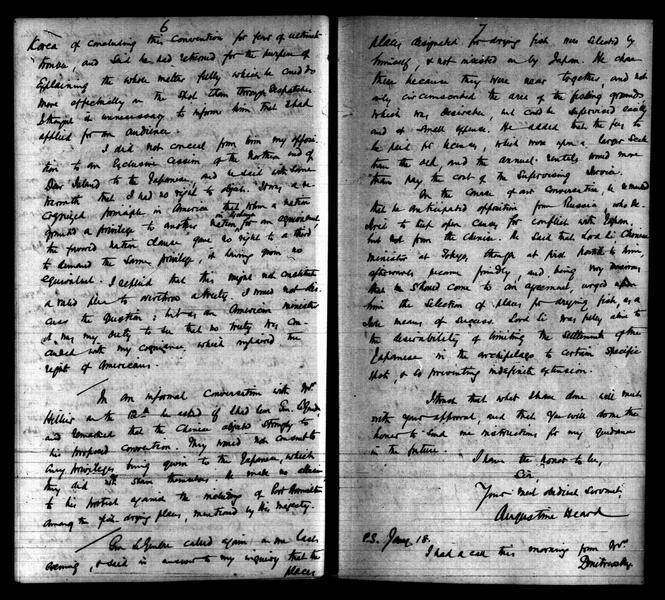 6
Korea of concluding this Convention for fear of ultimate
trouble, and said he had returned for the purpose of
explaining the whole matter fully, which he could do
more effectually on the spot than through Despatches.
I thought it unnecessary to inform him that I had
applied for an audience.
I did not conceal from him my opposi-
tion to an exclusive cession of the northern end of
Deer Island to the Japanese, and he said with some
warmth that I had no right to object. It was a re-
cognized principle in America that when a nation
granted a privilege to another nation for an equivalent,
the favored nation clause gave no right to a third
to demand the same privilege, it having given no
equivalent. I replied that this might not constitute
a valid plea to overthrow a treaty. I would not dis-
cuss the question; but as an American minister
it was my duty to see that no treaty was con-
cluded with my cognizance which impaired the
rights of Americans.
In an informal conversation with Mr.
Hillier on the he asked if I had seen Gen.
and remarked that the Chinese object strongly to
his proposed convention. They would not consent to
any privileges being given to the Japanese, which
they did not share themselves. He made no allusion
to his protest against the including of Port Hamilton
among the fish drying places, mentioned by His Majesty.
Gen. LeGendre called again on me last
evening, & said in answer to my inquiry that the
places
7
places designated for drying fish were selected by
himself, & not insisted on by Japan. He chose
these because they were near together, and not
only circumscribed the area of the fishing grounds
which was desirable, but could be supervised easily
and at small expense. He added that the fees to
be paid for licenses, which were upon a larger scale
than the old, and the annual rentals would more
than pay the cost of the supervising service.
In the course of our conversation, he remarked
that he anticipated opposition from Russia, who de-
sired to keep open causes for conflict with Japan,
but not from the Chinese. He said that Lord Li Chinese
minister at Tokyo, though at first hostile to him
afterwards became friendly, and being very desirous
that he should come to an agreement, urged upon
him the selection of places for drying fish, as a
sure means of success. Lord Li was fully alive to
the desirability of limiting the settlements of the
Japanese in the archipelago to certain specific
spots, & so preventing indefinite extension.
I trust that what I have done will meet
with your approval, and that you will do me the
honor to send me instructions for my guidance
in the future.
I have the honor to be,
Sir,
Your most obedient servant,
Augustine Heard
P.S. Jany. 18.
I had a call this morning from Mr.
Dmitrevsky